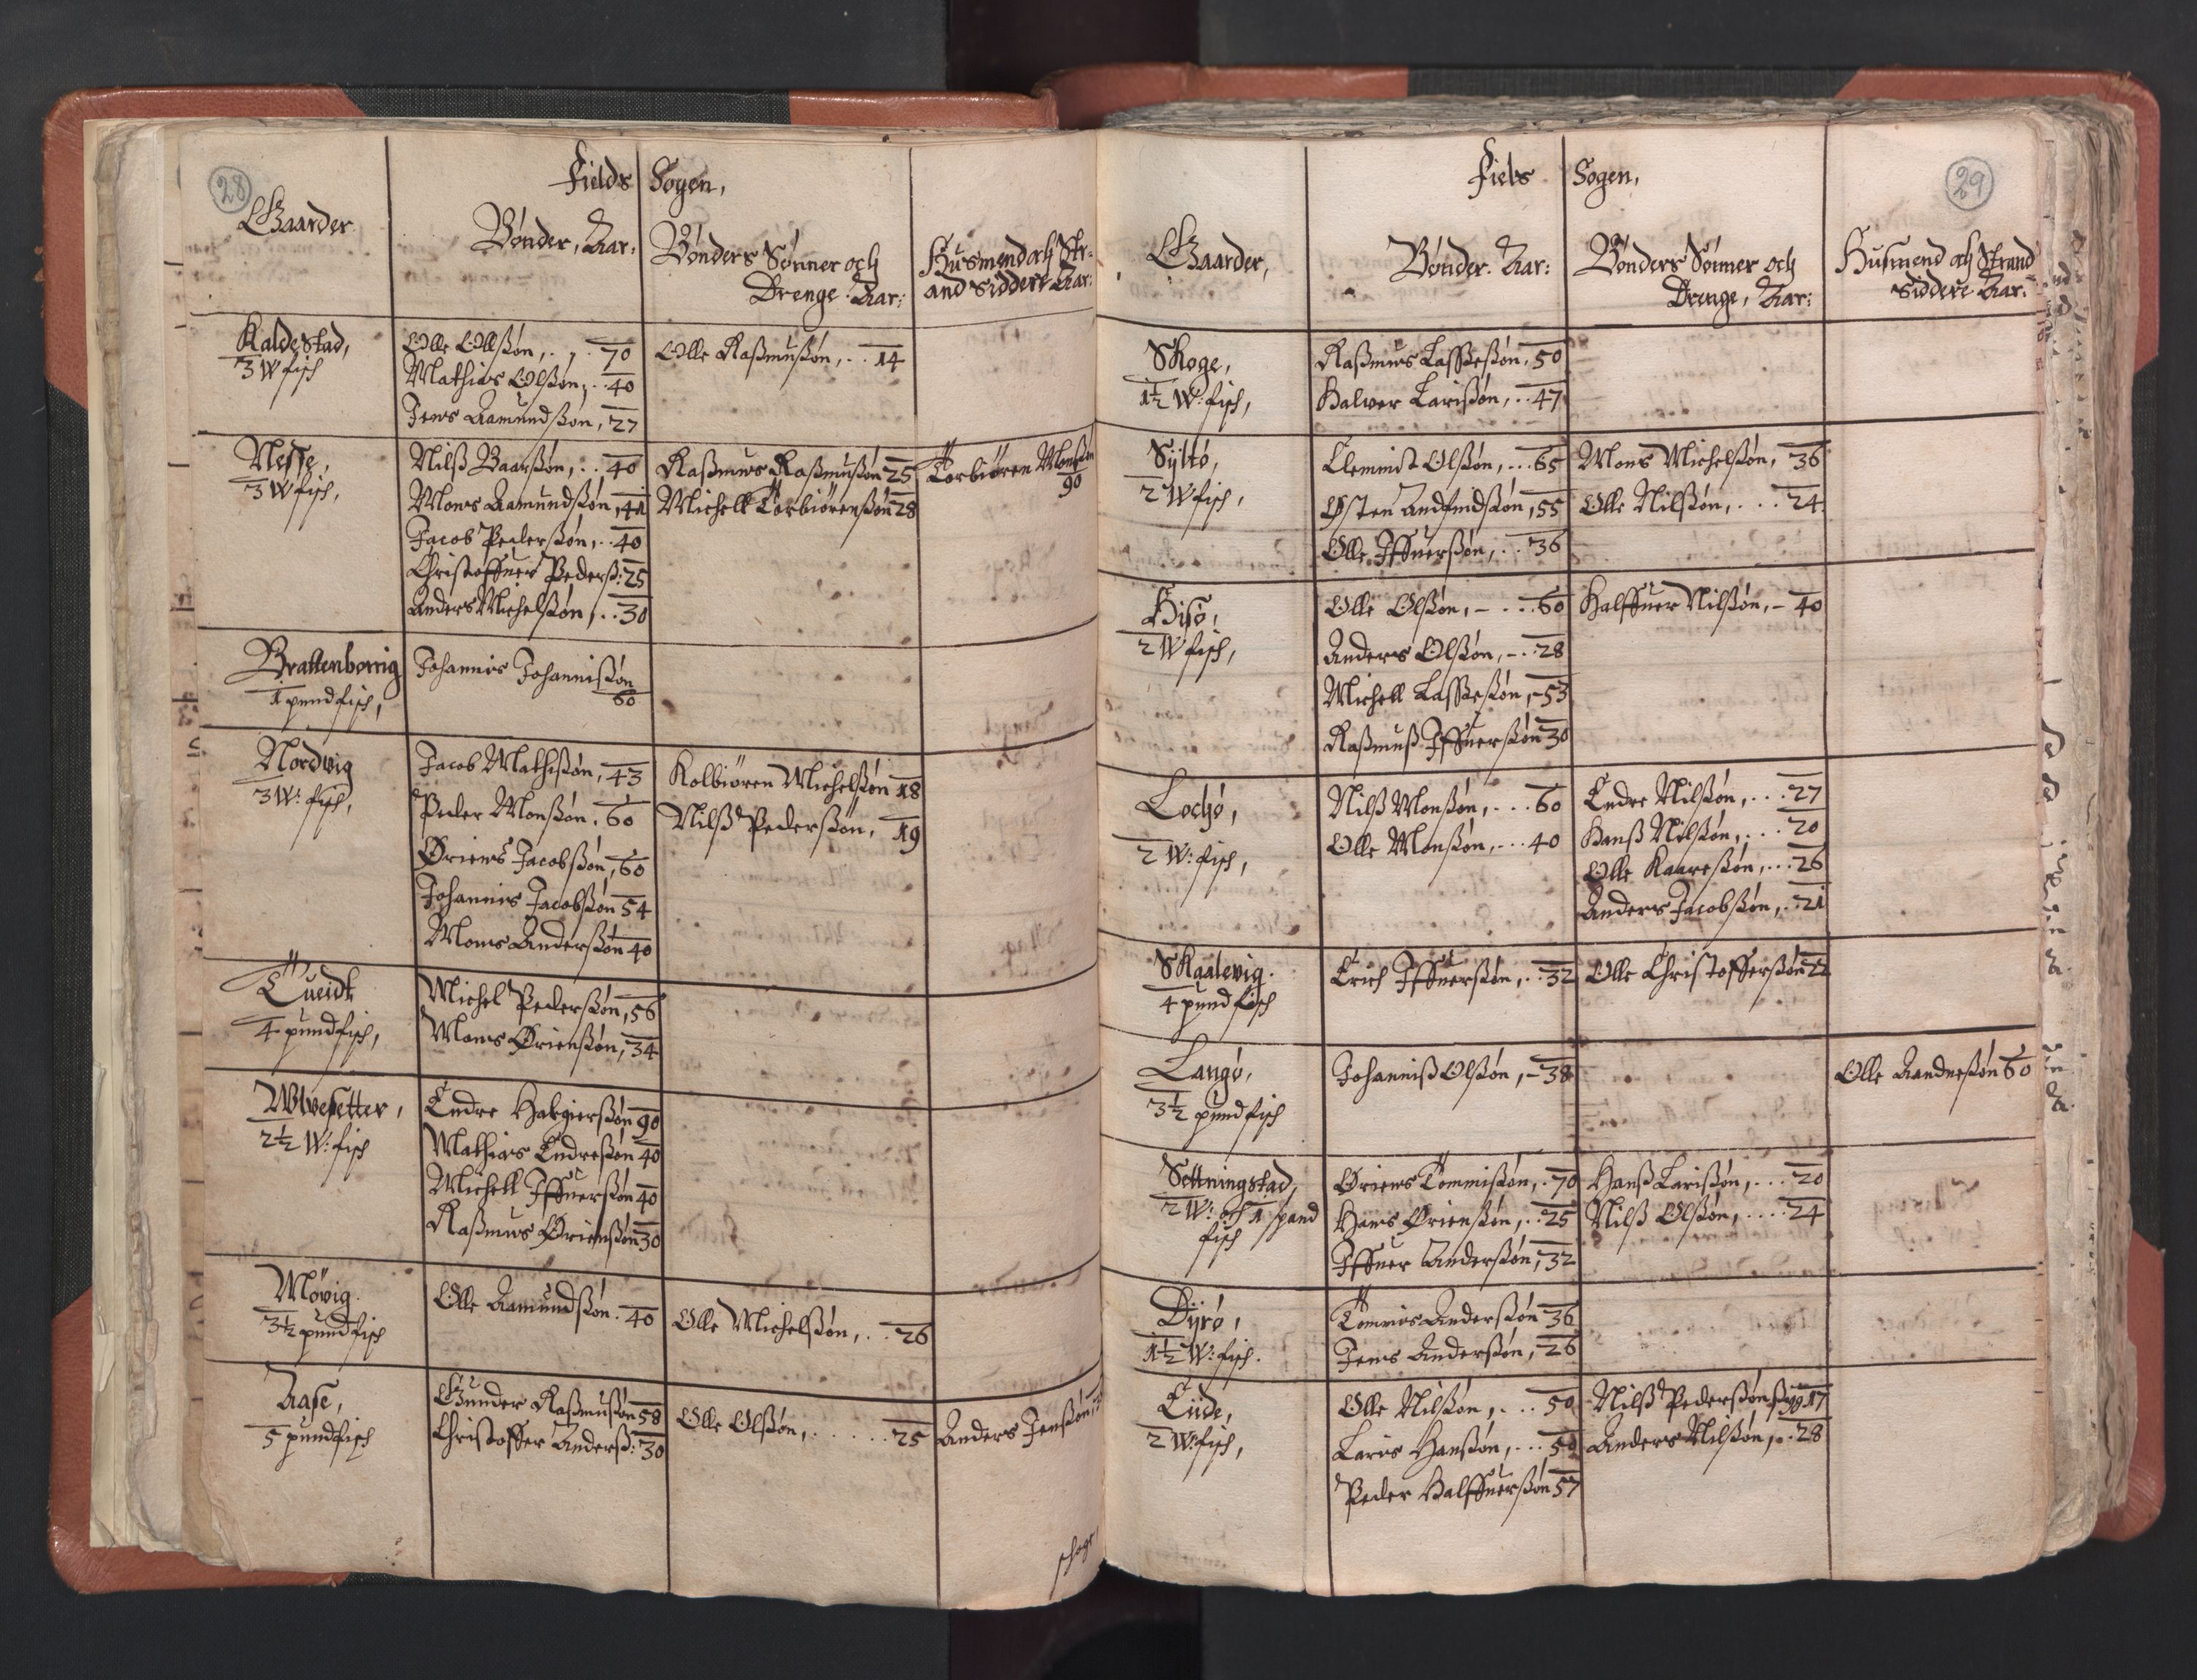 28
Fields Sogen,
Gaarder
Bønder, Aar:
Bønders Sønner och
Drenge. Aar:
Husmend och Str-
and Siddere Aar:
Kaldestad,
3 W fisch
Olle Ollsøn, . , . 70
Mathias Olsøn, . . 40
Jens Aamundsøn, 27
Olle Rasmusøn, . . 14
Nesse,
3 W fisch,
Nilß Baarsøn, . . 40
Mons Aamundsøn, 41
Jacob Pedersøn, . . 40
Christoffuer Pederß: 25
Anders Michelsøn, . . 30
Rasmus Rasmusøn 25
Michell Torbiørensøn 28
Torbiøren Monsøn
90
Brattenborrig
1 pund fisch,
Johannis Johannisøn
60
Nordvig
3 W: fisch,
Jacob Mathisøn, 43
Peder Monsøn, 60
Øriens Jacobsøn, 60
Johannis Jacobsøn 54
Mons Andersøn 40
Kolbiøren Michelsøn 18
Nilß Pedersøn, 19
Tueidt
4 pund fisch,
Michel Pedersøn, 56
Mons Øriensøn, 34
Wlvesetter,
2½ W: fisch
Endre Hakgiersøn 90
Mathias Endresøn 40
Michell Iffuersøn 40
Rasmus Øriensøn 30
Møvig.
3½ pund fisch
Olle Aamundsøn. 40
Olle Michelsøn, . . 26
Aase,
5 pund fisch
Gunder Rasmusøn 58
Christoffer Anderß: 30
Olle Olsøn, . . . . . . 25
Anders Jensøn,
Skoge
29
Fields Sogen,
Gaarder,
Bønder. Aar:
Bønders Sønner och
Drenge, Aar:
Husmend och Strand
Siddere Aar:
Skoge,
1½ W: fisch,
Rasmus Lassesøn, 50
Halver Larisøn, . . 47
Syltø,
2 W fisch,
Clemmit Olsøn, . . . 65
Østen Andfindsøn, 55
Olle Iffuersøn, . . 36
Mons Michelsøn, 36
Olle Nilsøn, . . . 24
Hisø,
2 W fisch,
Olle Olsøn, - . . . 60
Anders Olsøn, - . . 28
Michell Lassesøn, - 53
Rasmuß Iffuersøn 30
Halffuer Nilsøn, - 40
Lochø,
2 W: fisch,
Nilß Monsøn, . . . 60
Olle Monsøn, . . . 40
Endre Nilsøn, . . . 27
Hanß Nilsøn, . . . 20
Olle Kaaresøn, . . . 26
Anders Jacobsøn, . . 21
Skaalevig.
4 pund fisch
Erich Iffuersøn, . . 32
Olle Christoffersøn 22
Langø,
3½ pund fisch
Johanniß Olsøn, - 38
Olle Aandnesøn 60
Settningstad,
2 W: och 1 spand
fisch
Øriens Tommisøn, . 70
Hans Øriensøn, . . 25
Iffuer Andersøn, 32
Hanß Larisøn, . . . 20
Nilß Olsøn, . . . . 24
Dyrø,
1½ W: fisch.
Tommis Andersøn 36
Jens Andersøn, 26
Eide,
2 W: fisch,
Olle Nilsøn, . . . 50
Laris Hansøn, . . . 50
Peder Halffuersøn 57
Nilß Pedersøn 17
Anders Nilsøn, . . 28